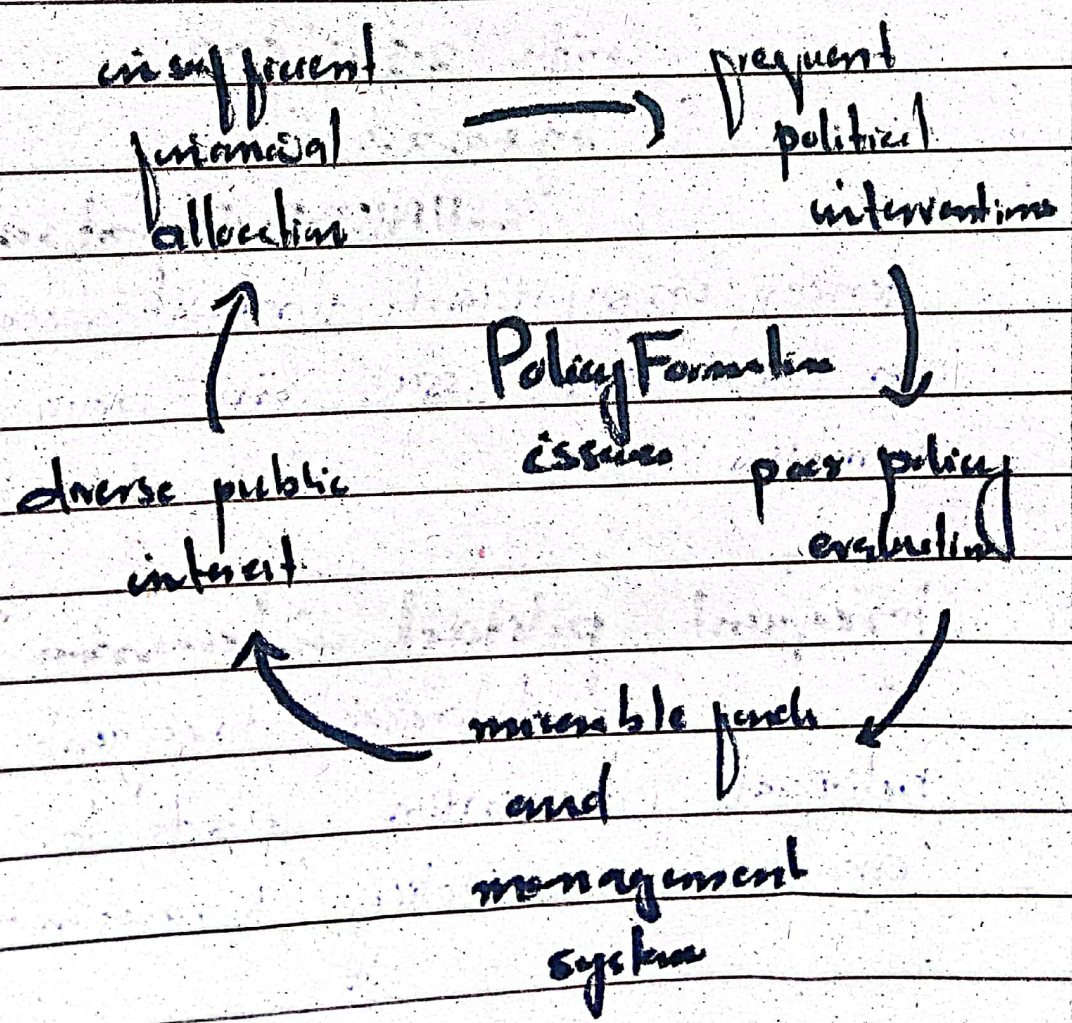 insufficient
financial
allocation
frequent
political
interventions
Policy Formation
issues
poor policy
evaluation
miserable funds
and
management
system
diverse public
interest